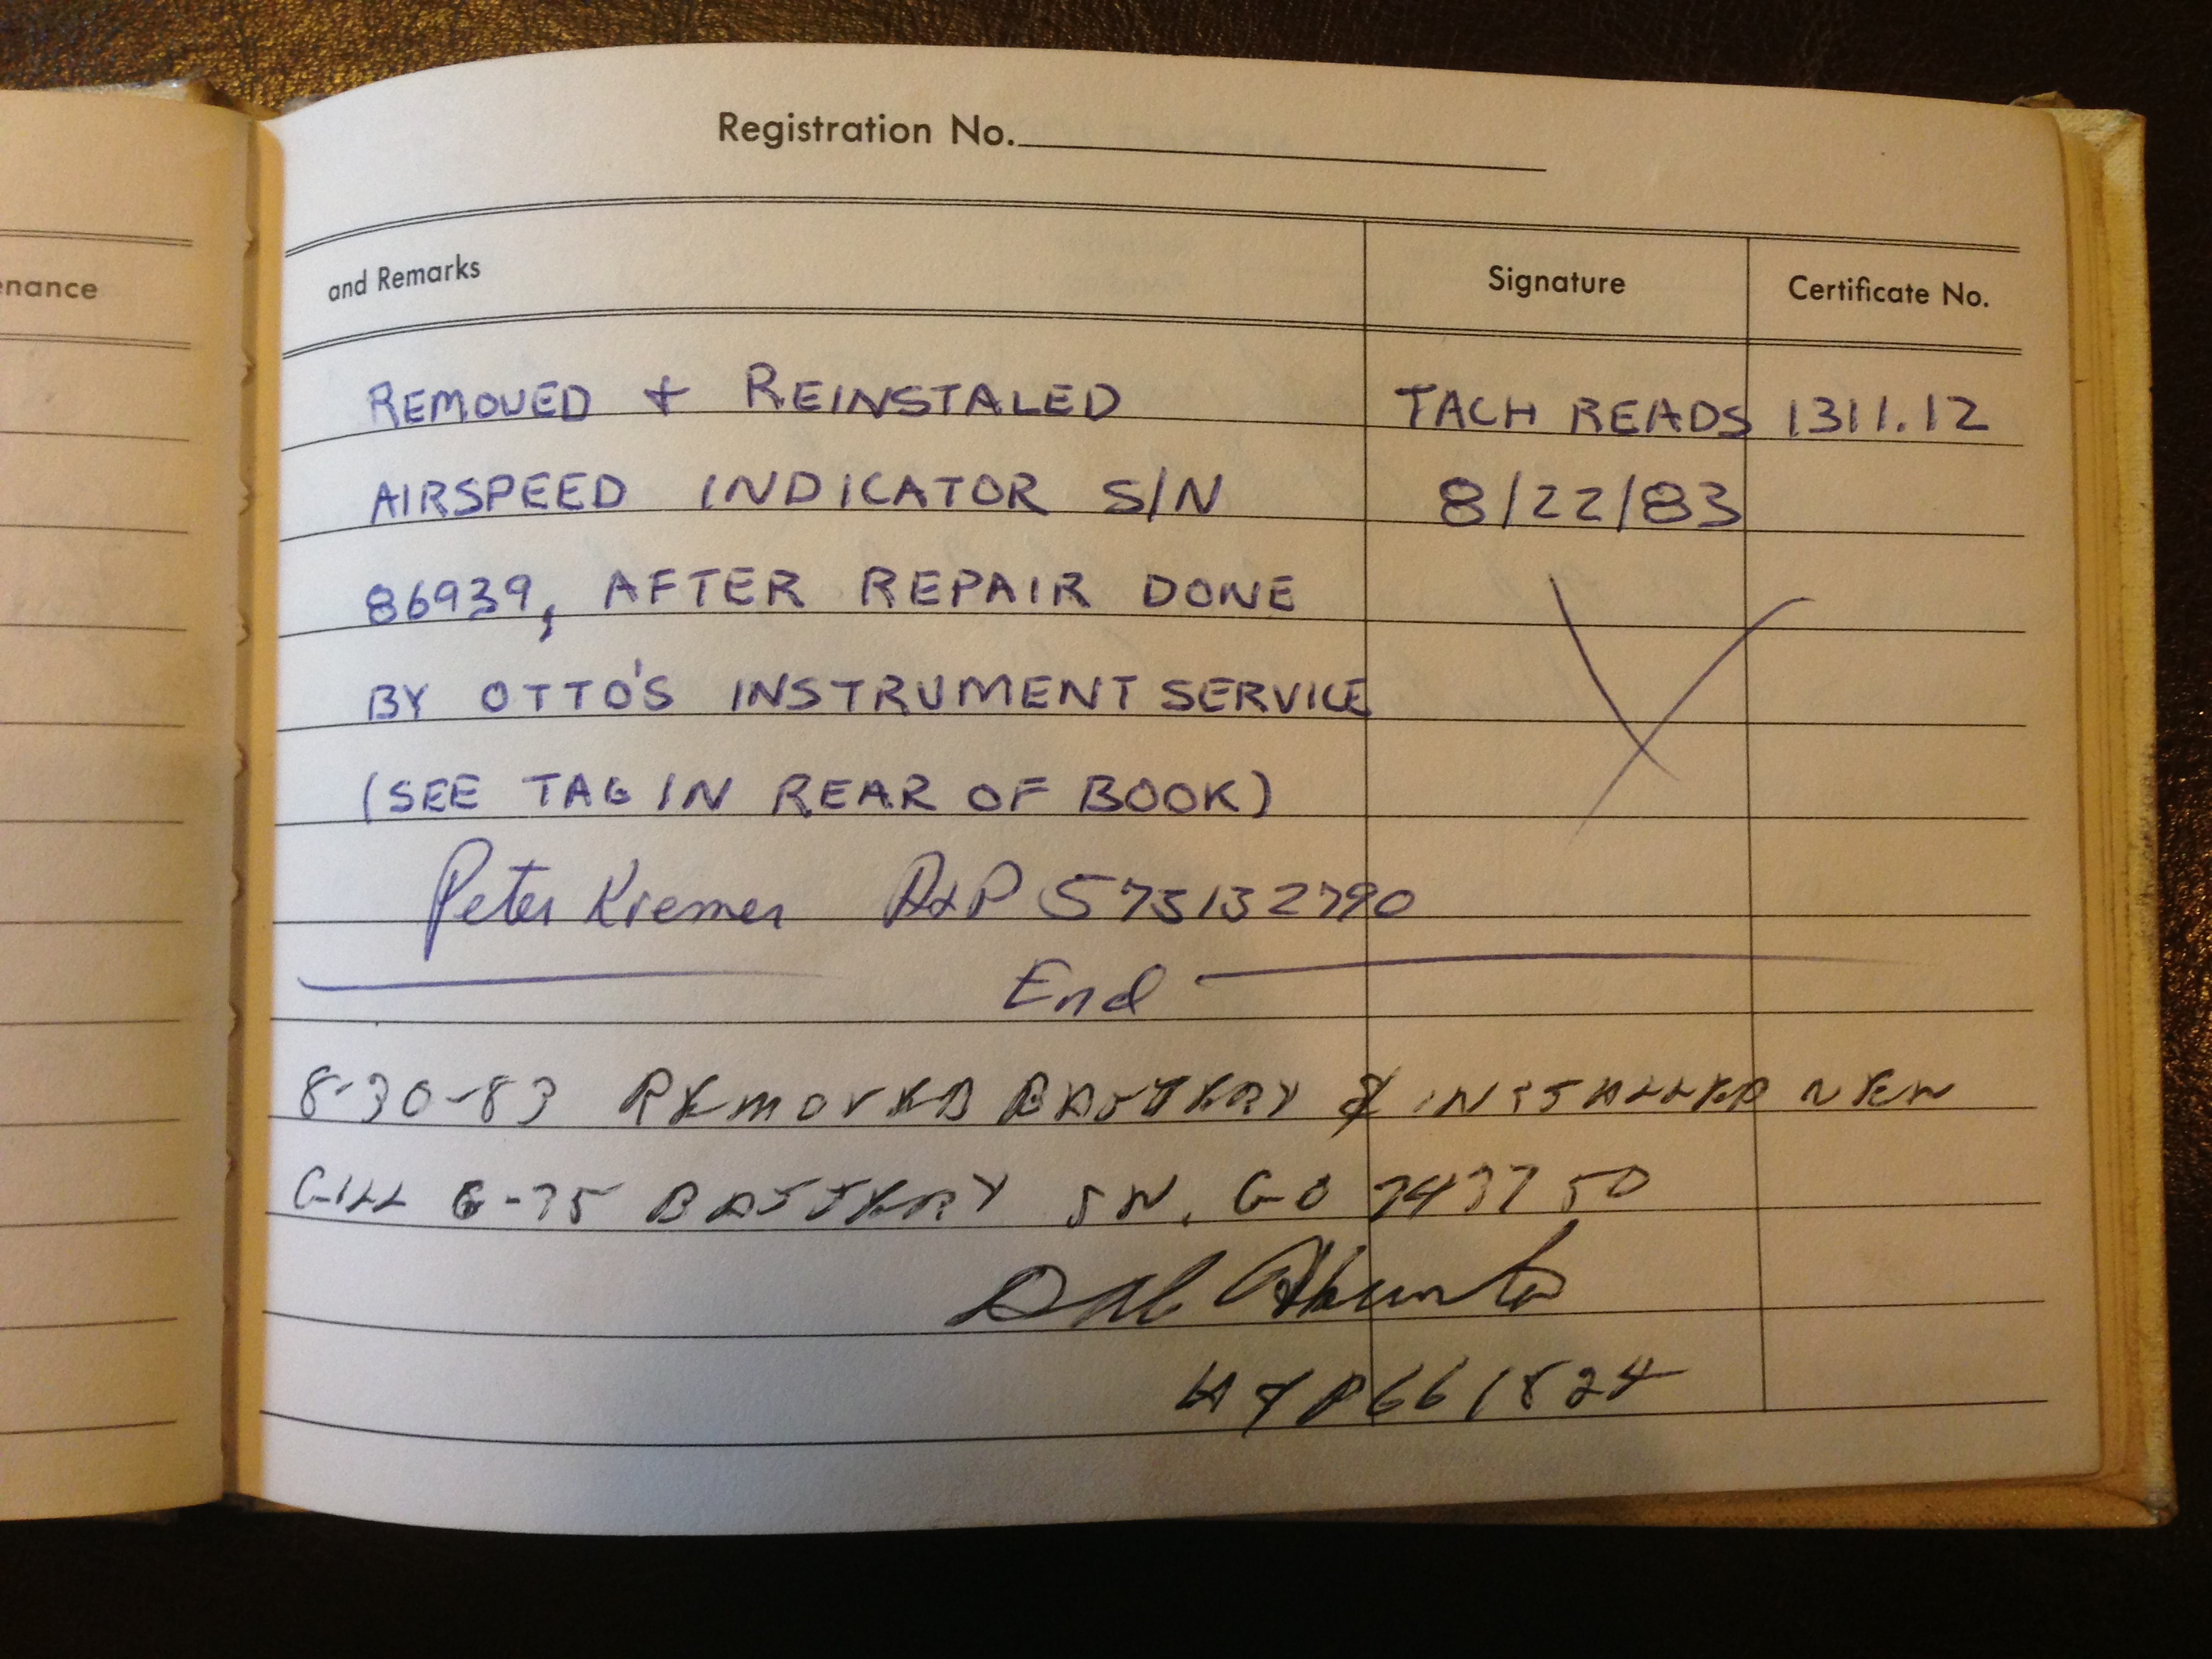 Registration No.
enance
and Remarks Signature Certificate No.
REMOVED + REINSTALED TACH READS 1311.12
AIRSPEED INDICATOR S/N 8/22/83
86939, AFTER REPAIR DONE
BY OTTO'S INSTRUMENT SERVICE
(SEE TAG IN REAR OF BOOK)
Peter Kremer A&P 573132790
End
8-30-83 REMOVED BATTERY & INSTALLED NEW
GILL BATTERY SN.
A&P 661824